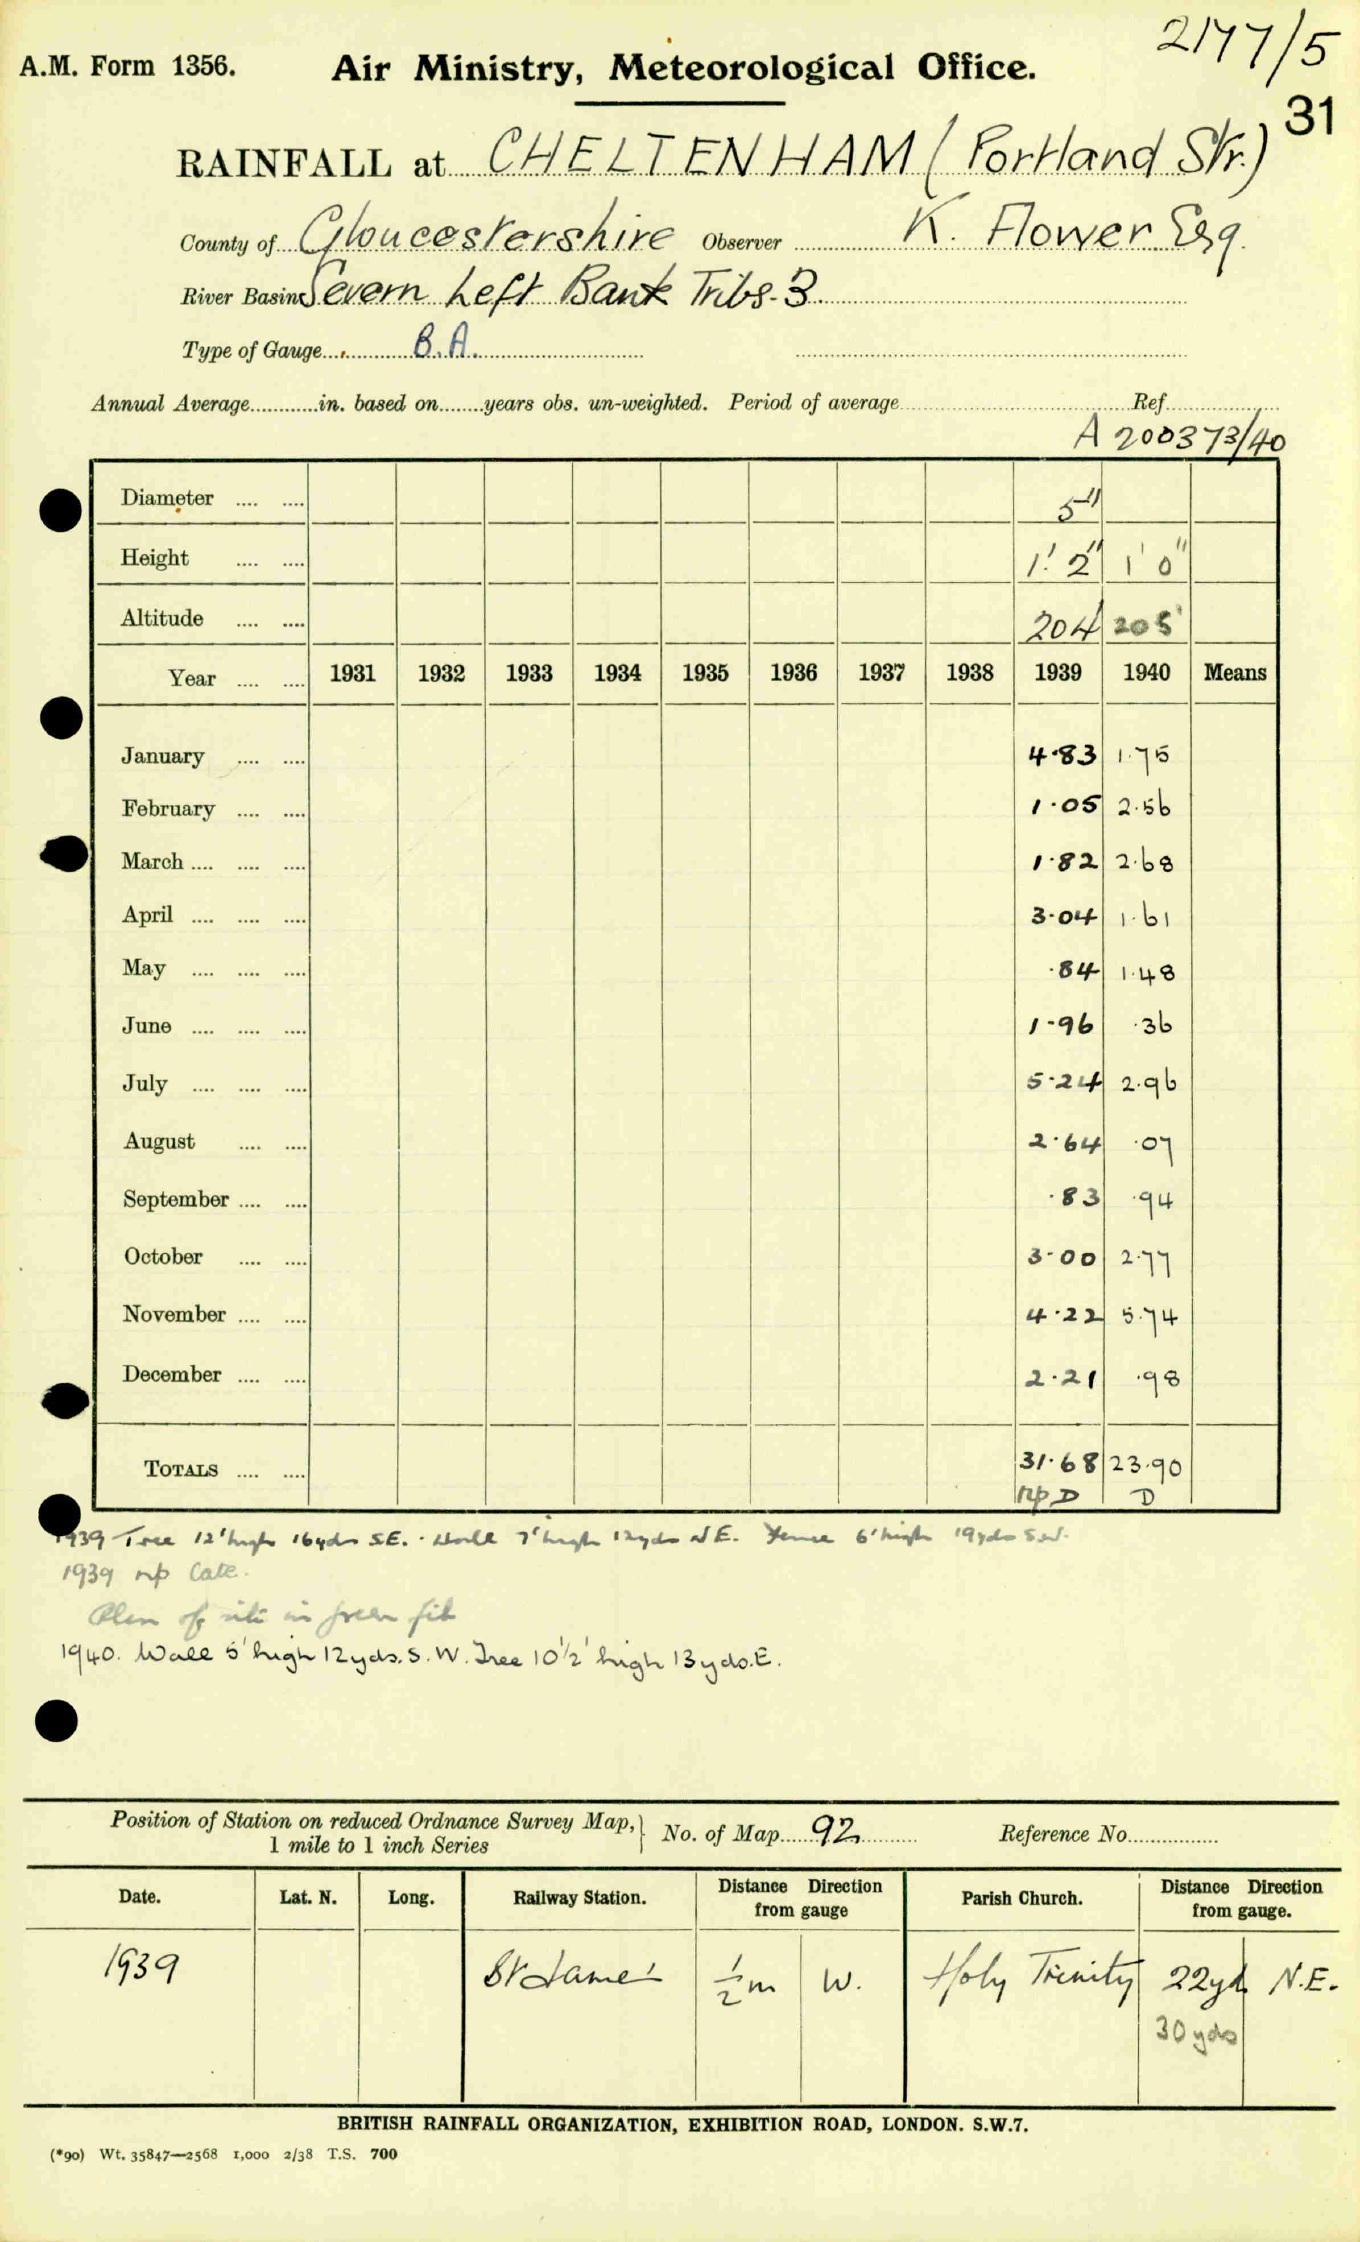 2177/5
A.M. Form 1356. Air Ministry, Meteorological Office.
31
RAINFALL at CHELTENHAM (Portland Str.)
County of Gloucestershire Observer K. Flower Esq.
River Basin Severn Left Bank Tribs. 3.
Type of Gauge B.A.
Annual Average............in. based on........years obs. un-weighted. Period of average Ref.
A 200373/40
Diameter .... .... 5"
Height .... .... 1' 2" 1' 0"
Altitude .... .... 204 205'
Year .... .... 1931 1932 1933 1934 1935 1936 1937 1938 1939 1940 Means
January .... .... 4.83 1.75
February .... .... 1.05 2.56
March .... .... .... 1.82 2.68
April .... .... .... 3.04 1.61
May .... .... .... .84 1.48
June .... .... .... 1.96 .36
July .... .... .... 5.24 2.96
August .... .... 2.64 .07
September .... .... .83 .94
October .... .... 3.00 2.77
November .... .... 4.22 5.74
December .... .... 2.21 .98
TOTALS .... .... 31.68 23.90
np D D
1939 Tree 12' high 16yds S.E. Wall 7' high 12yds N.E. Fence 6' high 19yds S.W.
1939 np late.
Plan of site in green file
1940. Wall 5' high 12yds. S.W. Tree 10 1/2' high 13yds. E.
Position of Station on reduced Ordnance Survey Map, 1 mile to 1 inch Series } No. of Map 92 Reference No.
Date. Lat. N. Long. Railway Station. Distance Direction from gauge Parish Church. Distance Direction from gauge.
1939 St James' 1/2 m W. Holy Trinity 22yd N.E.
30 yds
BRITISH RAINFALL ORGANIZATION, EXHIBITION ROAD, LONDON. S.W.7.
(*90) Wt. 35847—2568 1,000 2/38 T.S. 700